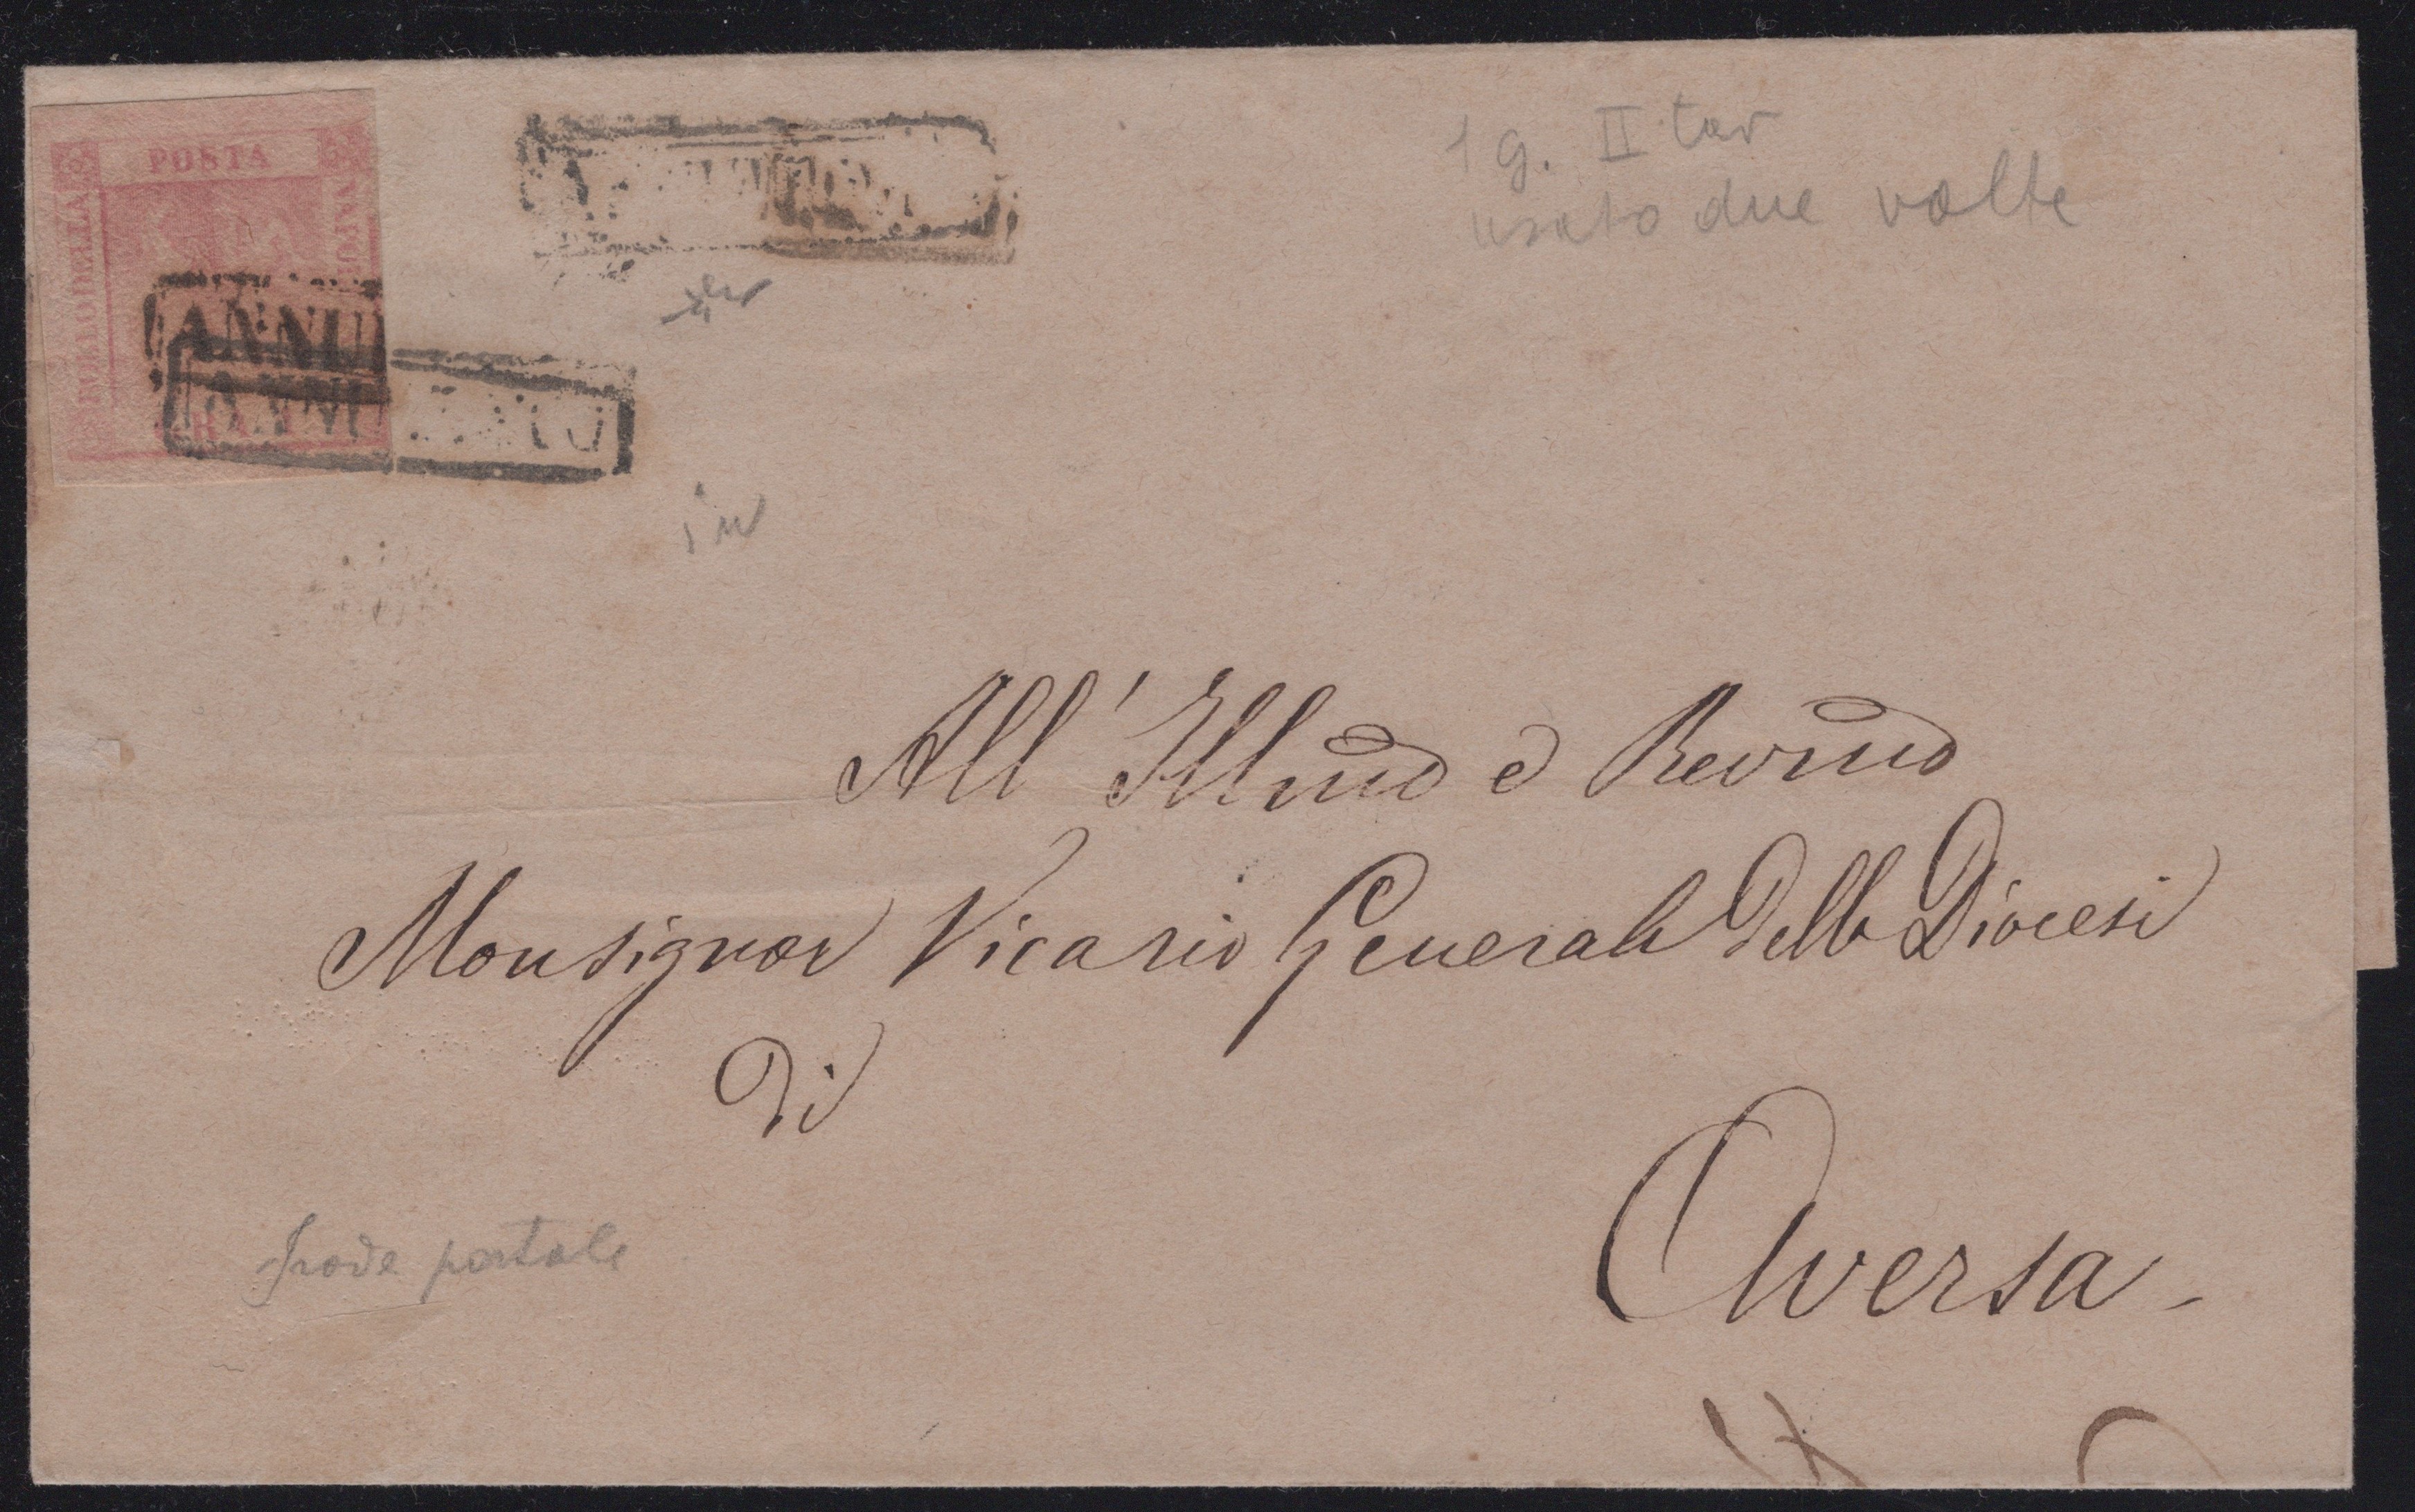 POSTA
NAPOLETANA
BOLLO DELLA
ANNUL
ANNULLATO
1 g. II tav
usato due volte
All' Illmo e Revmo
Monsignor Vicario Generale della Diocesi
di
Aversa -
frode postale